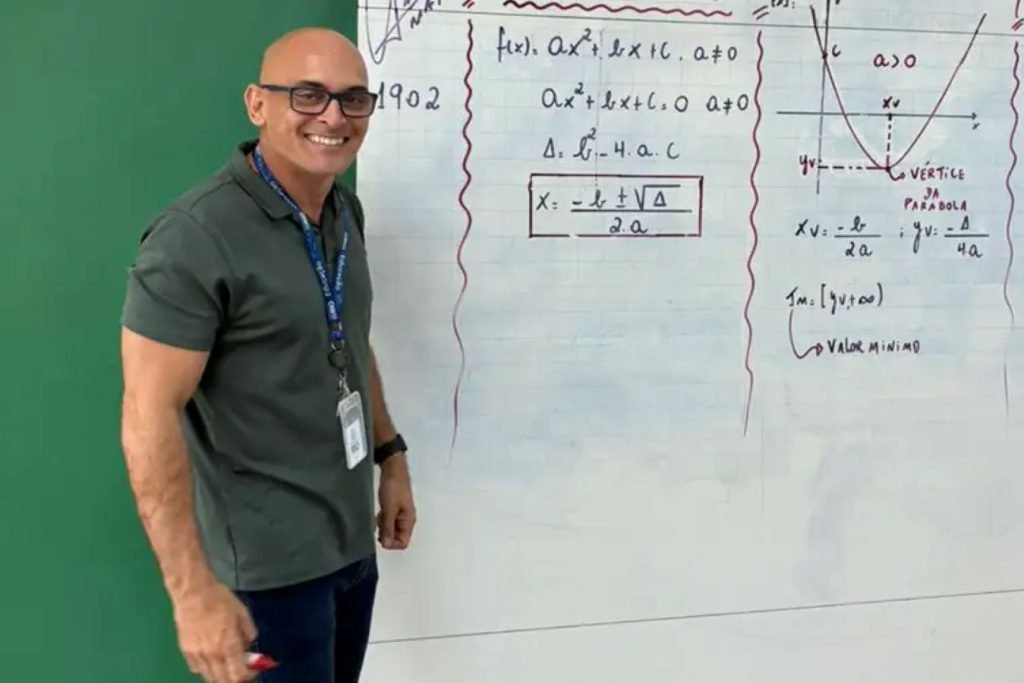 1902
f(x)= ax²+ bx+c, a≠0
ax²+bx+c=0 a≠0
Δ= b²-4.a.c
x= -b ±√Δ / 2.a
c
a>0
xv
x
yv
VÉRTICE
DA
PARÁBOLA
xv= -b/2a ; yv= -Δ/4a
Im= [yv,+∞)
VALOR MÍNIMO
Educação